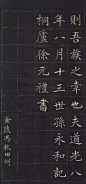 則吾族之幸也夫道光八
年八月十三世孫永和記
桐廬徐元禮書
金陵馮秋田刻